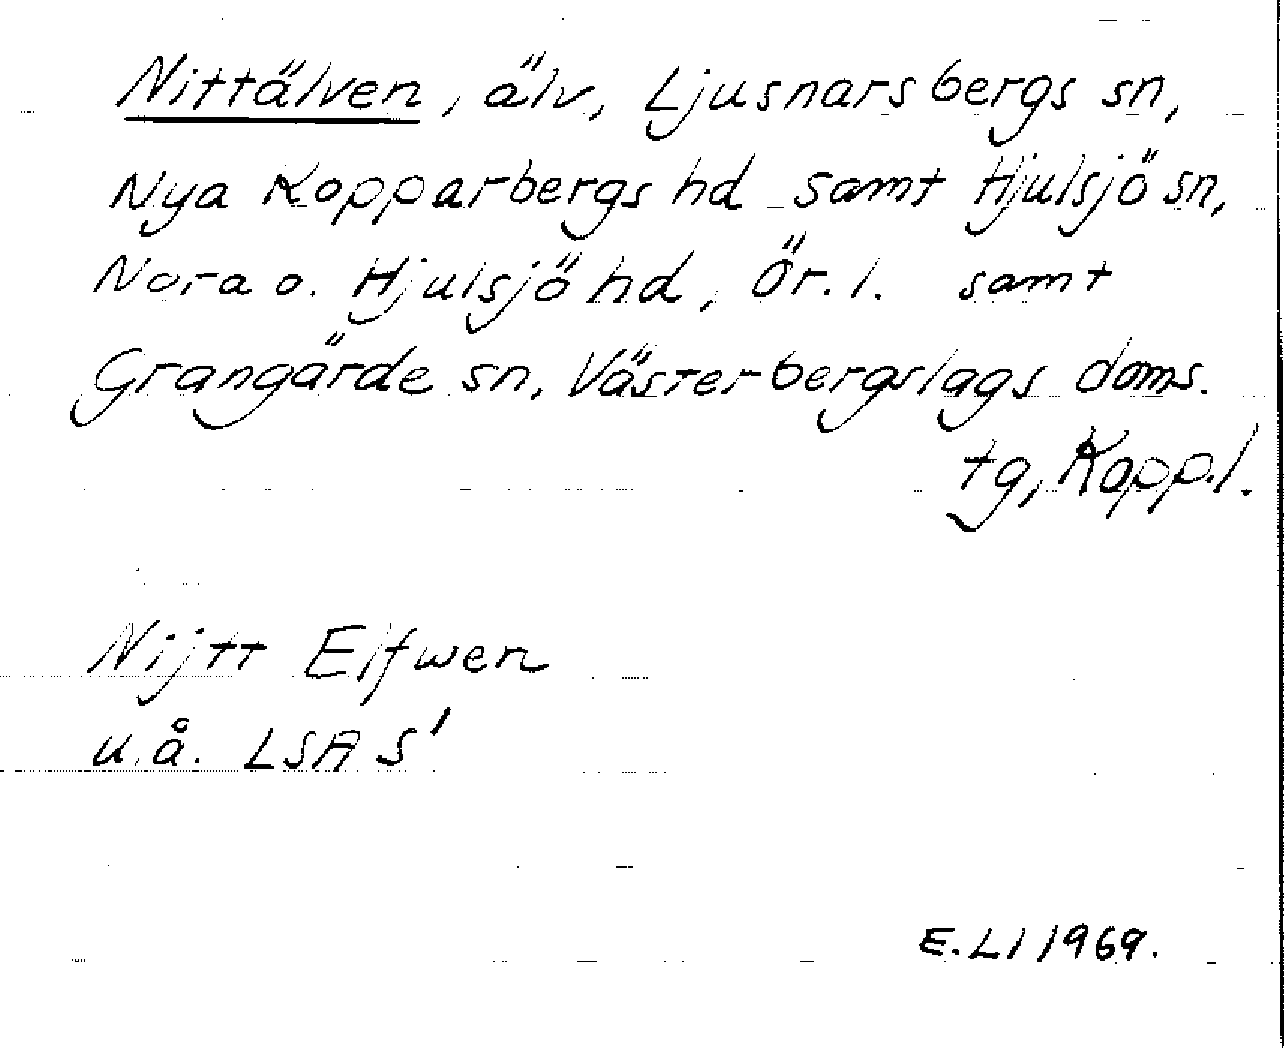 Nittälven, älv, Ljusnarsbergs sn,
Nya Kopparbergs hd samt Hjulsjö sn,
Nora o. Hjulsjö hd, Ör. l. samt
Grangärde sn, Västerbergslags doms.
tg, Kopp. l.
Nijtt Elfwen
u.å. LSA S'
E. LI 1969.